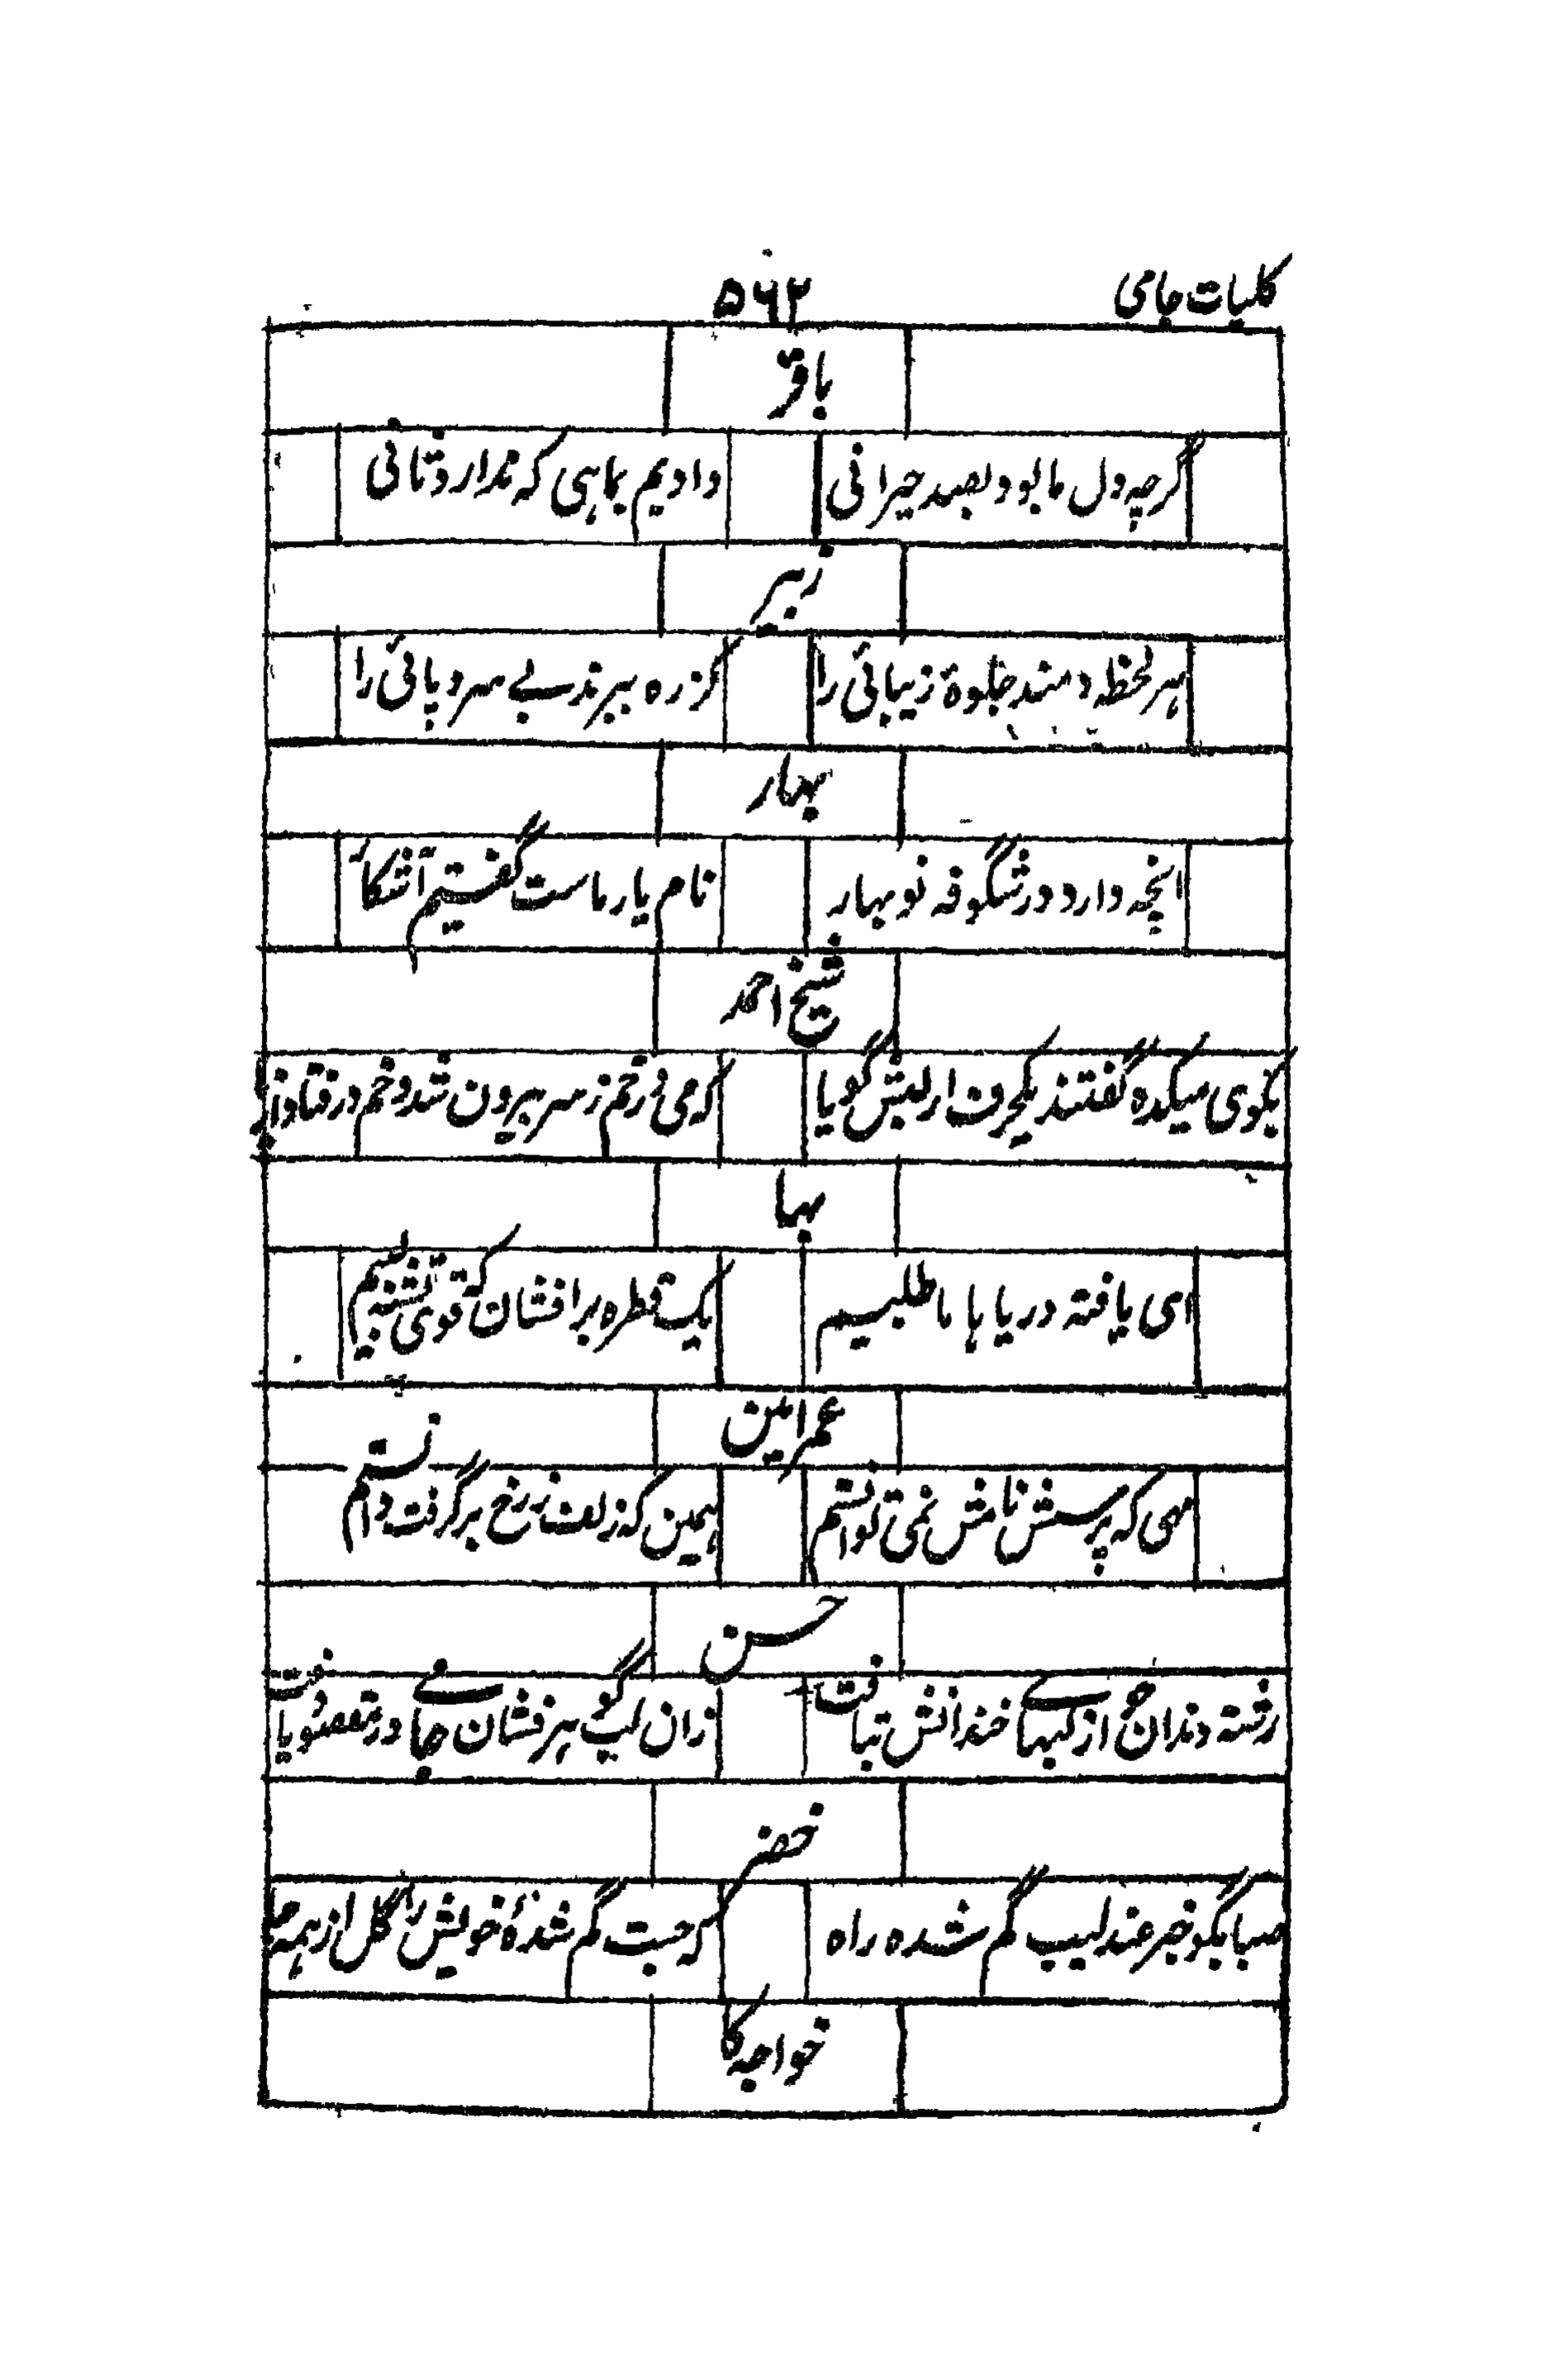 کلیات جامی ۵۶۲
باقر
گرچه دل ما بود بصد حیرانی دادیم بماهی که ندارد ثانی
زبیر
هر لحظه دهند جلوهٔ زیبائی را کز ره ببرند بے سر و پائی را
بهار
انچه دارد در شگوفه نوبهار نام یار ماست گفتیم آشکار
شیخ احمد
بکوی میکده گفتند یکحرف از لبش گویا که می در خم ز سر بیرون شد و خم در فتاد از پا
بها
ای یافته دریاها ما طلبیم یک قطره برافشان که قوی تشنه لبیم
عمر امین
مهی که پرسش نامش نمی توانستم همین که زلف ز رخ برگرفت دانستم
حسن
رشته دندان چو از لبهاے خندانش بتافت زان لب گوهرفشان جامے در مقصود یافت
خضر
صبا بگو خبر عندلیب گم شده راه که جست گم شدهٔ خویش را گل از همه جا
خواجه کا